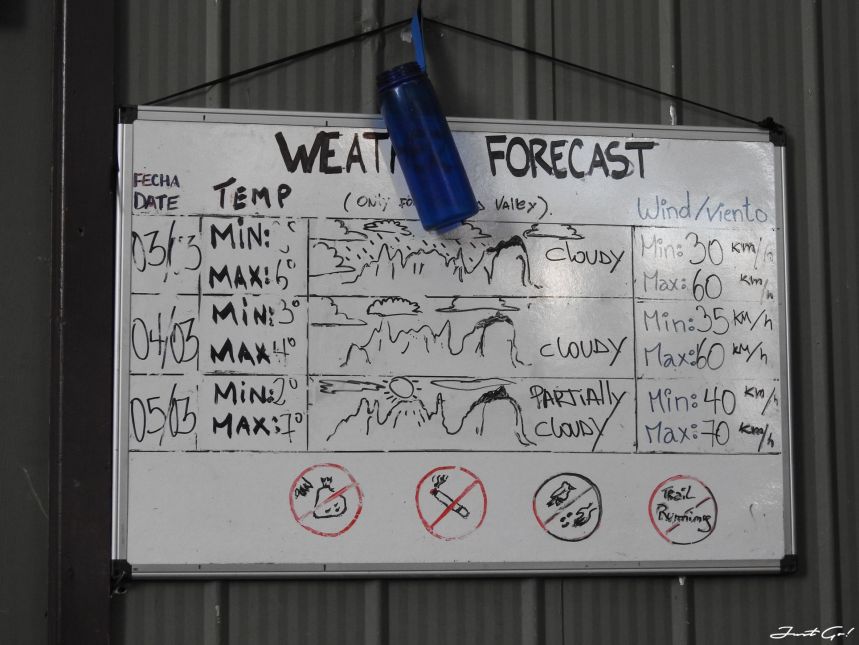 WEAT FORECAST
(Only FO Valley).
FECHA DATE
TEMP
Wind/Viento
03/03
MiN:
MAX: 6°
CLOUDY
Min: 30 KM/h
Max: 60 KM/h
04/03
MiN: 3°
MAX 4°
CLOUDY
Min: 35 KM/h
Max: 60 KM/h
05/03
MiN: 2°
MAX: 7°
PARTIALLY CLOUDY
Min: 40 KM/h
Max: 70 KM/h
Trail
Running
Just Go!